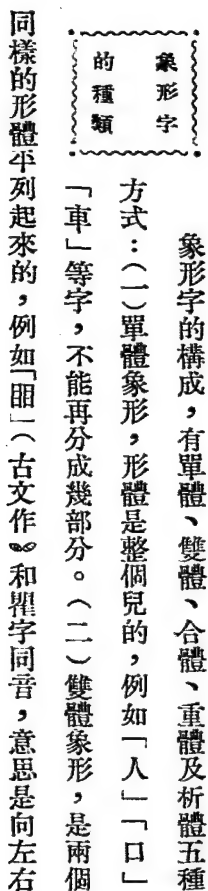 象形字
的種類
象形字的構成，有單體、雙體、合體、重體及析體五種
方式：（一）單體象形，形體是整個兒的，例如「人」「口」
「車」等字，不能再分成幾部分。（二）雙體象形，是兩個
同樣的形體平列起來的，例如「䀠」（古文作 和瞿字同音，意思是向左右